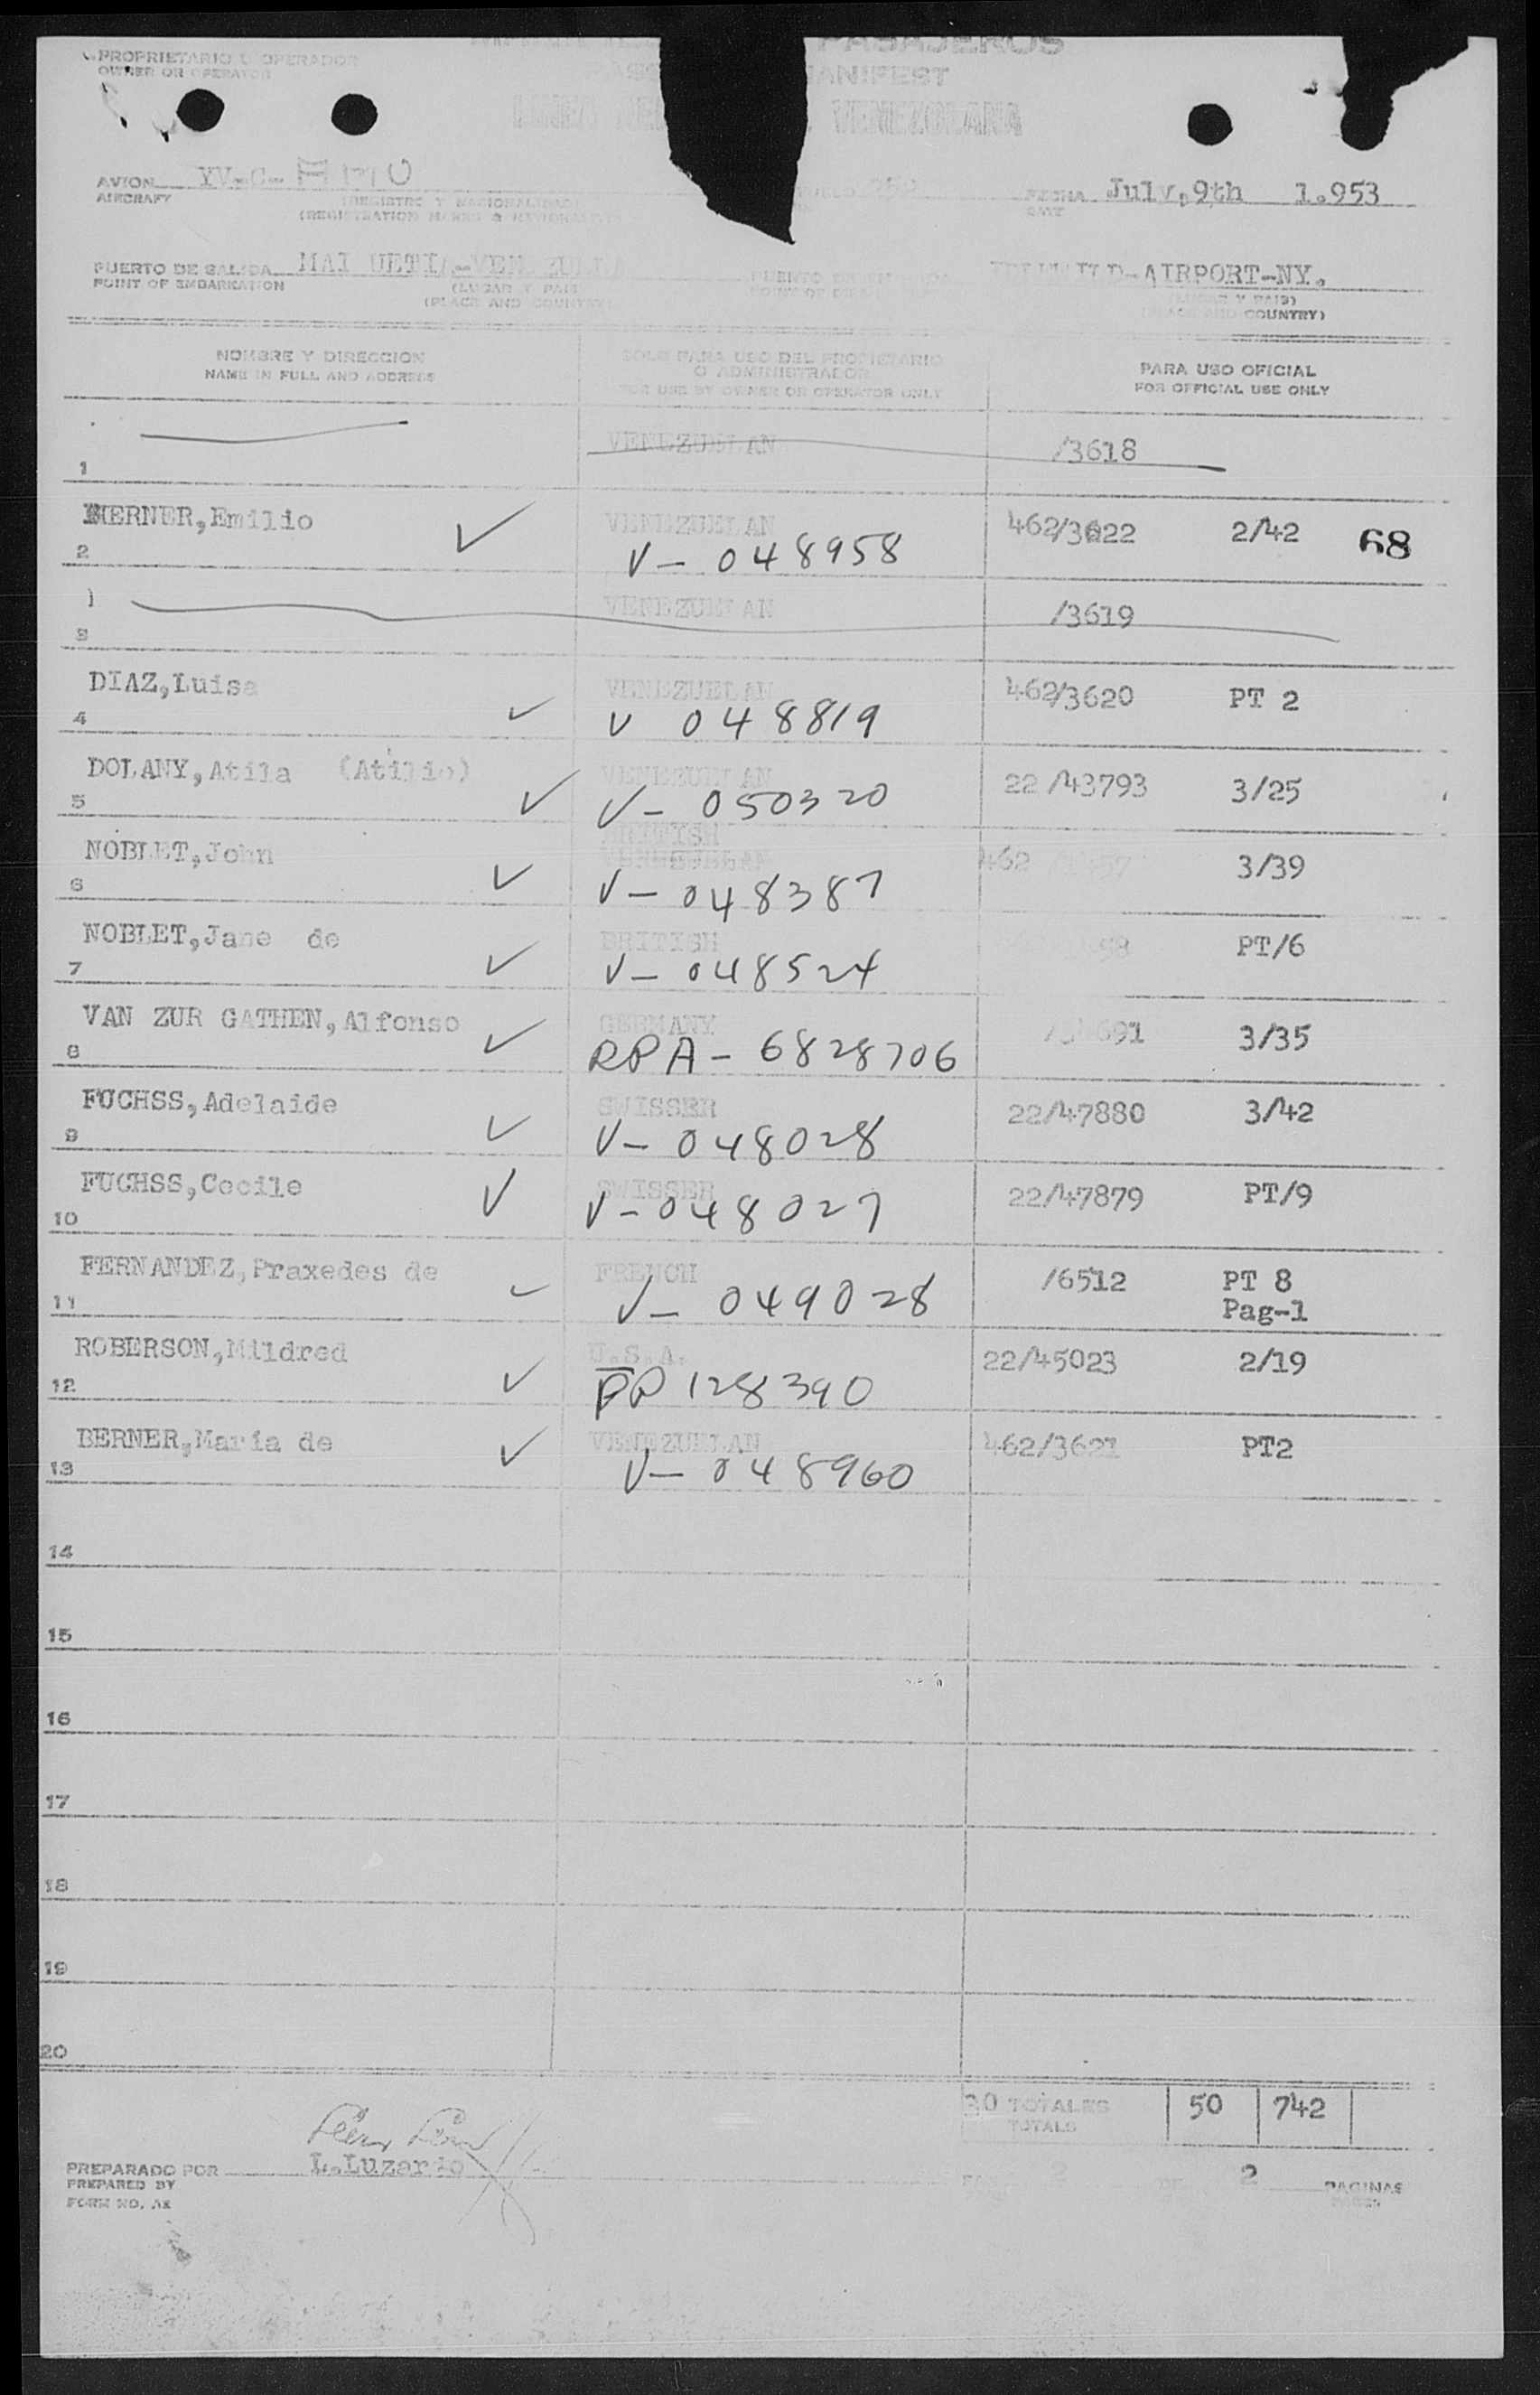 PROPRIETARIO U OPERADOR
OWNER OR OPERATOR
PASAJEROS
MANIFEST
VENEZOLANA
AVION YV-C-
AIRCRAFT
(REGISTRO Y NACIONALIDAD)
(REGISTRATION MARKS & NATIONALITY)
FECHA July,9th 1.953
PUERTO DE SALIDA MAI UETIA-VENEZUELA
POINT OF EMBARKATION
(LUGAR Y PAIS)
(PLACE AND COUNTRY)
IDLEWILD-AIRPORT-NY.
(LUGAR Y PAIS)
(PLACE AND COUNTRY)
NOMBRE Y DIRECCION
NAME IN FULL AND ADDRESS
SOLO PARA USO DEL PROPIETARIO
O ADMINISTRADOR
FOR USE BY OWNER OR OPERATOR ONLY
PARA USO OFICIAL
FOR OFFICIAL USE ONLY
1 VENEZUELAN /3618
2 BERNER,Emilio VENEZUELAN 462/3622 2/42 68
V-048958
3 VENEZUELAN /3619
4 DIAZ,Luisa VENEZUELAN 462/3620 PT 2
V 048819
5 DOLANY,Atila (Atilio) VENEZUELAN 22/43793 3/25
V-050320
BRITISH
6 NOBLET,John VENEZUELAN 462 3/39
V-048387
7 NOBLET,Jane de BRITISH PT/6
V-048524
8 VAN ZUR GATHEN,Alfonso GERMANY 3/35
RPA-6828706
9 FUCHSS,Adelaide SWISSER 22/47880 3/42
V-048028
10 FUCHSS,Cecile SWISSER 22/47879 PT/9
V-048027
11 FERNANDEZ,Praxedes de FRENCH /6512 PT 8
V-049028 Pag-1
12 ROBERSON,Mildred U.S.A. 22/45023 2/19
PP 128390
13 BERNER,Maria de VENEZUELAN 462/3621 PT2
V-048960
14
15
16
17
18
19
20
30 TOTALES 50 742
TOTALS
PREPARADO POR L.Luzardo
PREPARED BY
FORM NO. AK
PAG. 2 DE 2 PAGINAS
PAGES